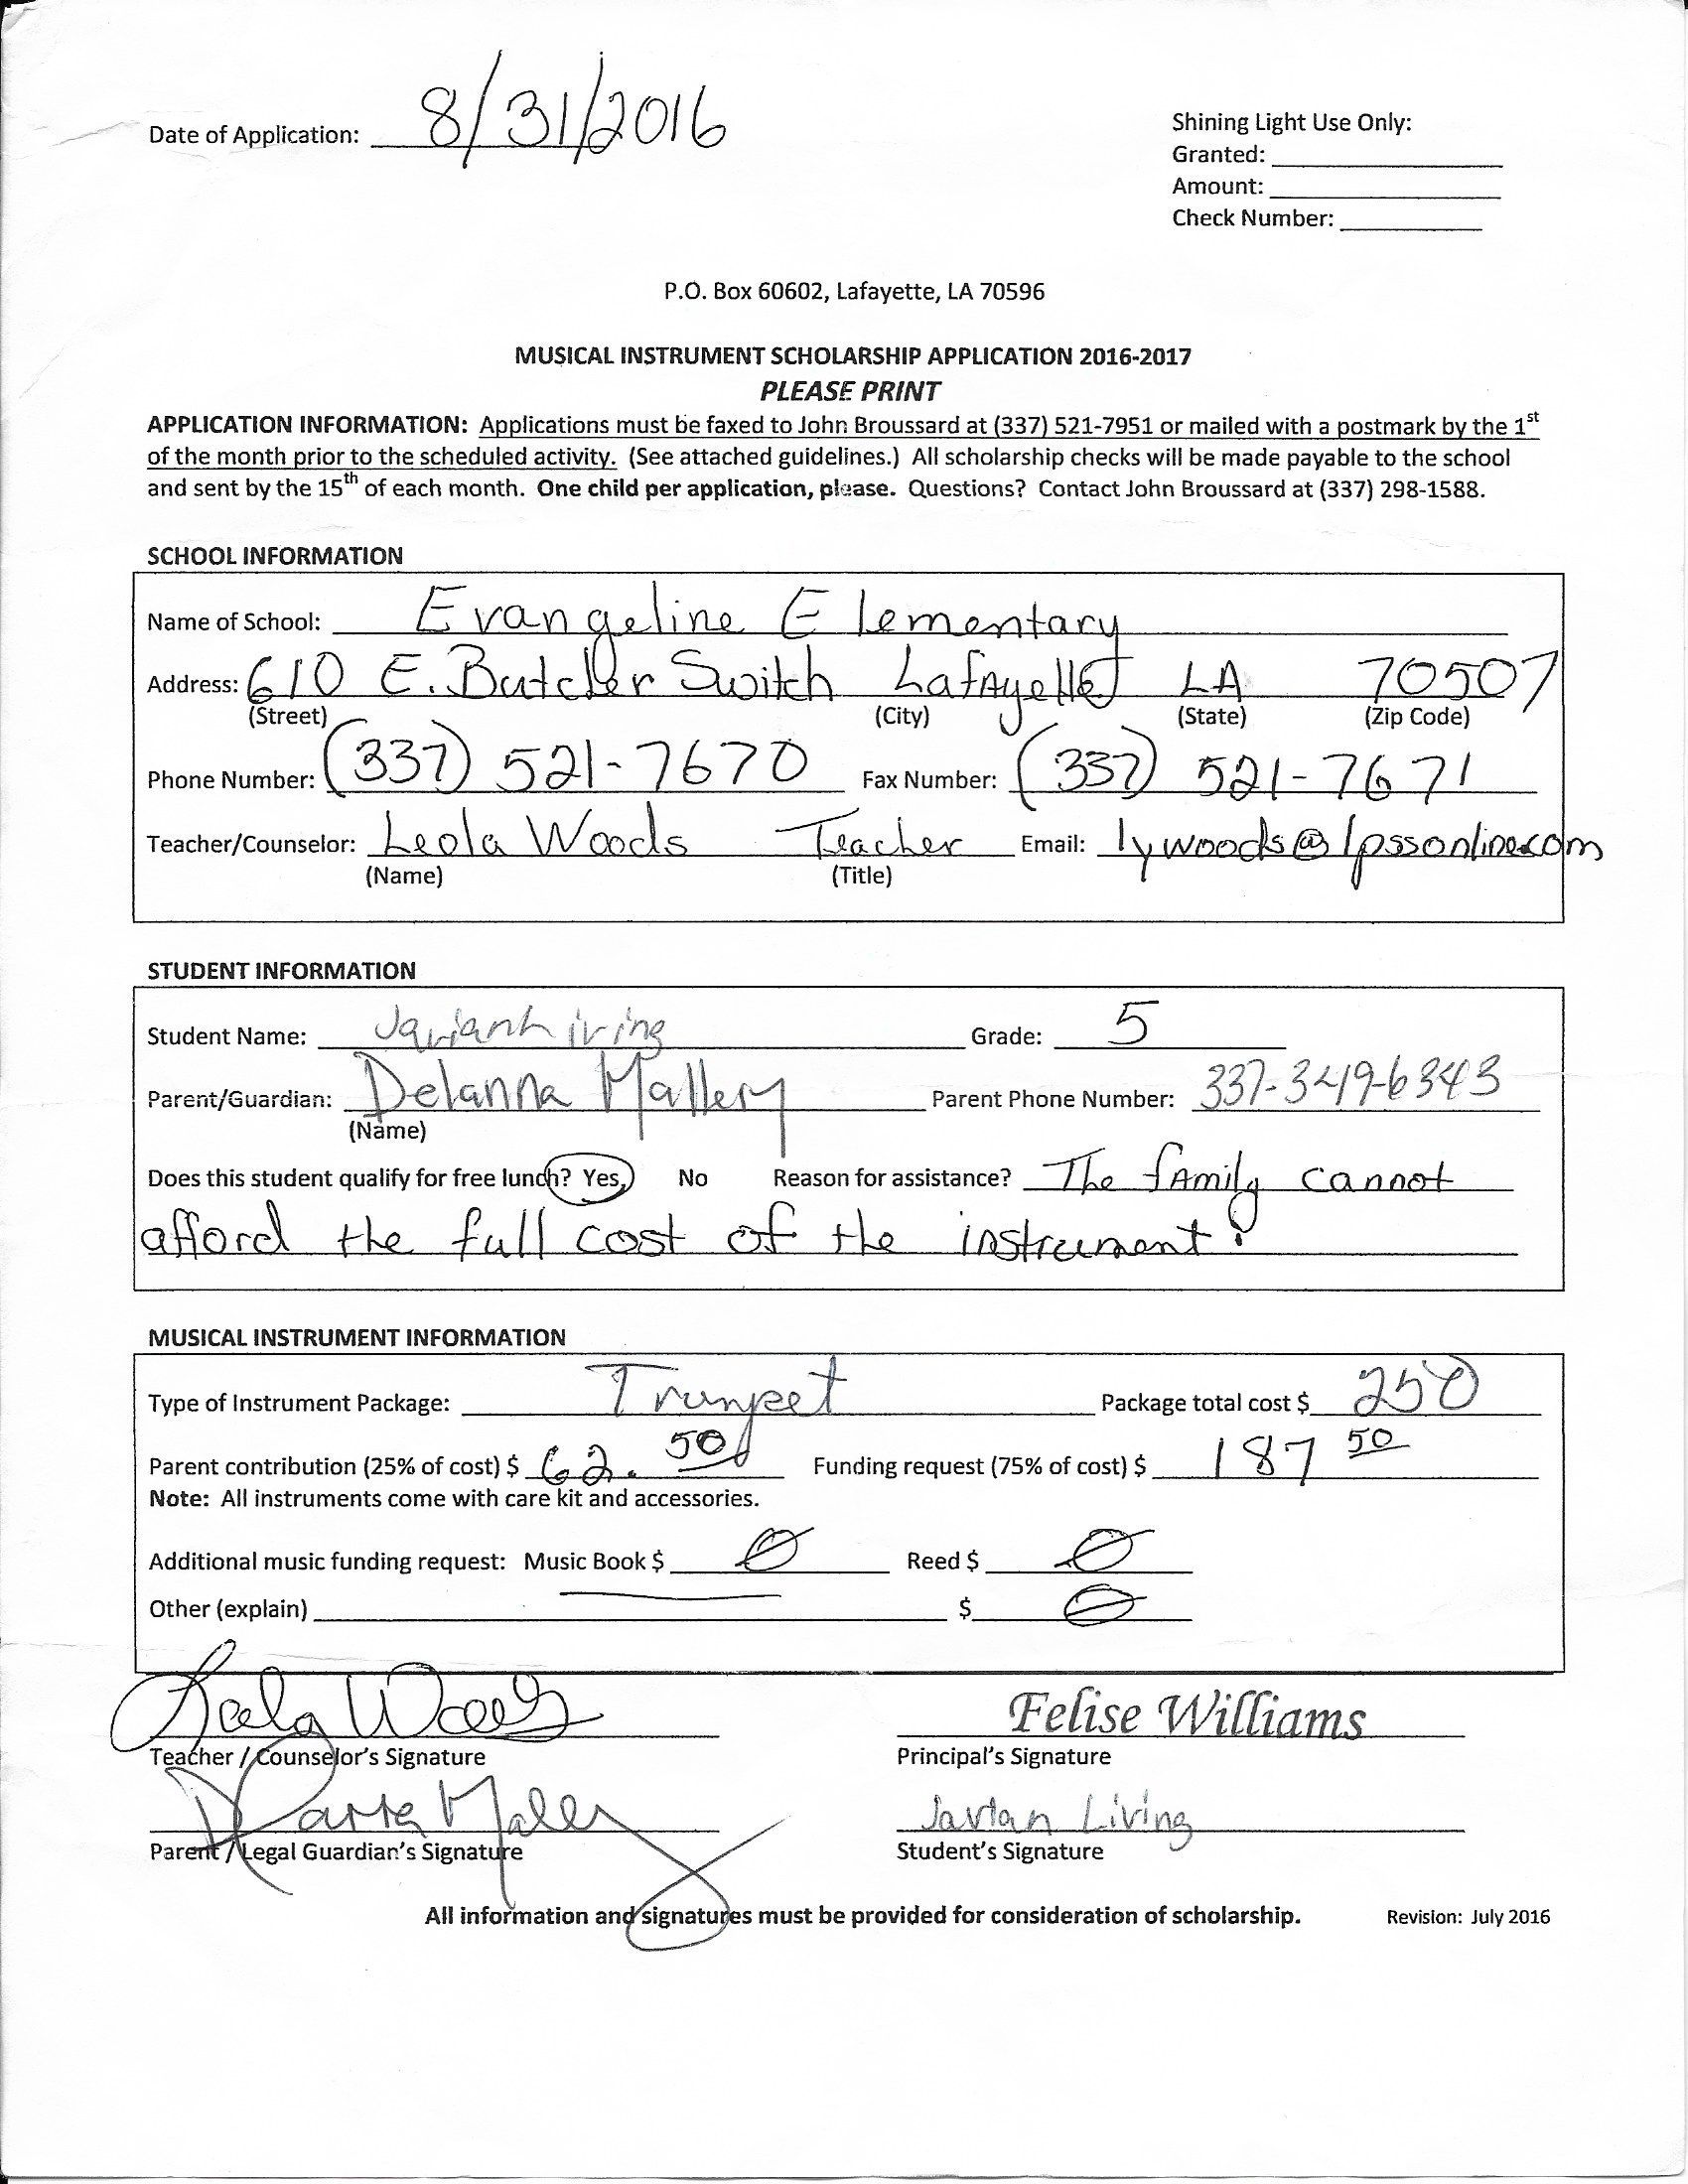 Date of Application: 8/31/2016
Shining Light Use Only:
Granted:
Amount:
Check Number:
P.O. Box 60602, Lafayette, LA 70596
MUSICAL INSTRUMENT SCHOLARSHIP APPLICATION 2016-2017
PLEASE PRINT
APPLICATION INFORMATION: Applications must be faxed to John Broussard at (337) 521-7951 or mailed with a postmark by the 1st
of the month prior to the scheduled activity. (See attached guidelines.) All scholarship checks will be made payable to the school
and sent by the 15th of each month. One child per application, please. Questions? Contact John Broussard at (337) 298-1588.
SCHOOL INFORMATION
Name of School: Evangeline Elementary
Address: 610 E. Butcher Switch Lafayette LA 70507
(Street) (City) (State) (Zip Code)
Phone Number: (337) 521-7670 Fax Number: (337) 521-7671
Teacher/Counselor: Leola Woods Teacher Email: lywoods@lpssonline.com
(Name) (Title)
STUDENT INFORMATION
Student Name: Grade: 5
Parent/Guardian: Delanna Mallery Parent Phone Number: 337-349-6343
(Name)
Does this student qualify for free lunch? Yes, No Reason for assistance? The family cannot
afford the full cost of the instrument.
MUSICAL INSTRUMENT INFORMATION
Type of Instrument Package: Trumpet Package total cost $ 250
Parent contribution (25% of cost) $ 62.50 Funding request (75% of cost) $ 187 50
Note: All instruments come with care kit and accessories.
Additional music funding request: Music Book $ 0 Reed $ 0
Other (explain) $ 0
Leola Woods Felise Williams
Teacher / Counselor's Signature Principal's Signature
Javian Living
Parent / Legal Guardian's Signature Student's Signature
All information and signatures must be provided for consideration of scholarship. Revision: July 2016